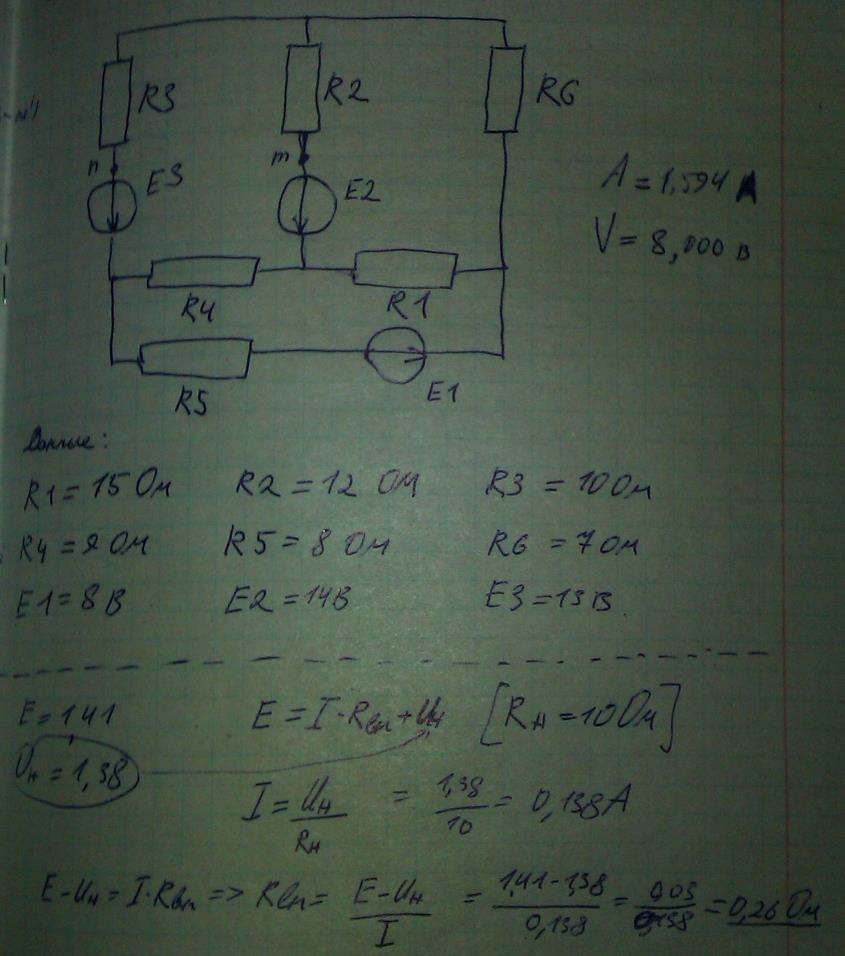 R3
R2
R6
n
m
E3
E2
A = 1,594 A
V = 8,000 в
R4
R1
R5
E1
Данные:
R1 = 15 Ом R2 = 12 Ом R3 = 10 Ом
R4 = 9 Ом R5 = 8 Ом R6 = 7 Ом
E1 = 8 В E2 = 14 В E3 = 13 В
E = 1,41 E = I·Rвп + Uн [Rн = 10 Ом]
Uн = 1,38
I = Uн/Rн = 1,38/10 = 0,138 А
E-Uн = I·Rвп => Rвп = E-Uн/I = 1,41-1,38/0,138 = 0,03/0,138 = 0,26 Ом